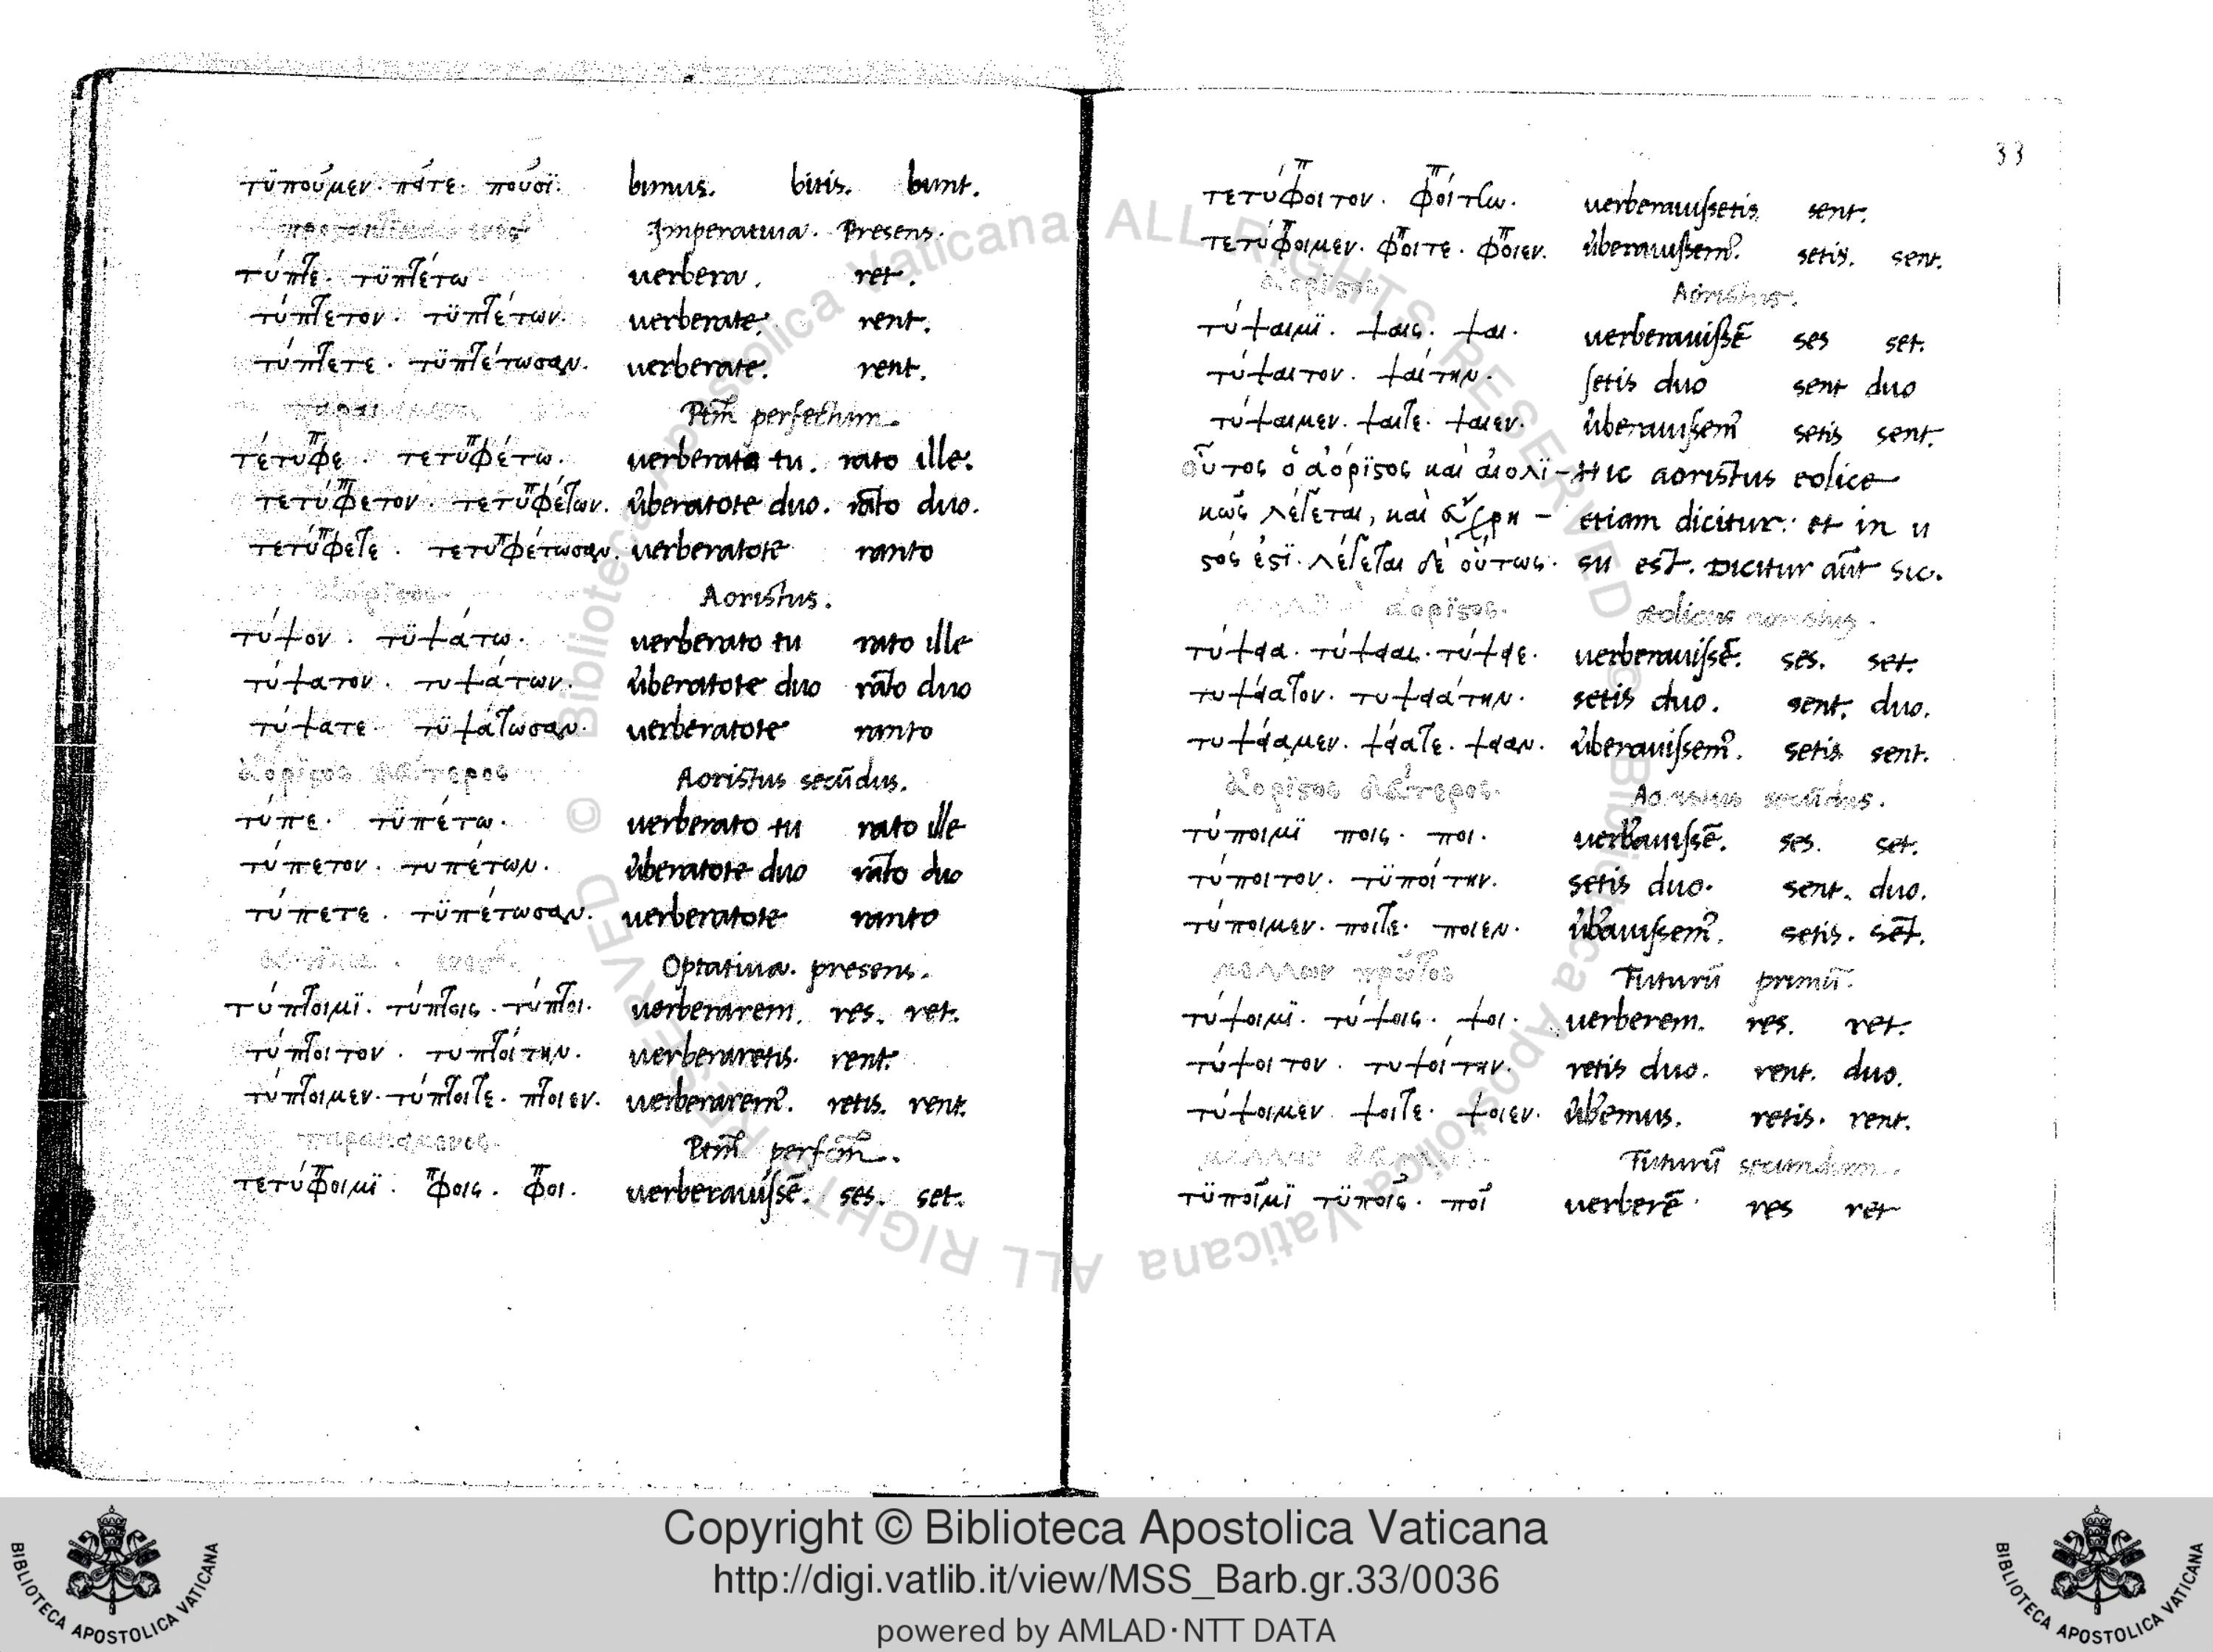 τϋπούμεν. πεῖτε. ποῦσϊ. bimus. bitis. bunt.
Imperatiua. Presens.
τύπτε. τϋπτέτω uerbera. ret.
τύπτετον. τϋπτέτων. uerberate. rent.
τύπτετε. τϋπτέτωσαν. uerberate. rent.
Ptm̃ perfectum.
τέτυφε. τετυφέτω. uerberato tu. rato ille.
τετύφετον. τετυφέτων. ũberatote duo. rãto duo.
τετύφετε. τετυφέτωσαν. uerberatote ranto
ἀόρϊστος. Aoristus.
τύψον. τϋψάτω. uerberato tu rato ille
τύψατον. τυψάτων. ũberatote duo rãto duo
τύψατε. τϋψάτωσαν. uerberatote ranto
ἀόρϊστος δεύτερος Aoristus secũdus.
τύπε. τϋπέτω. uerberato tu rato ille
τύπετον. τυπέτων. ũberatote duo rãto duo
τύπετε. τϋπέτωσαν. uerberatote ranto
Optatiua. presens.
τύπτοιμϊ. τύπτοις. τύπτοι. uerberarem. res. ret.
τύπτοιτον. τυπτοίτην. uerberaretis. rent.
τύπτοιμεν. τύπτοιτε. πτοιεν. uerberarem᾽. retis. rent.
παρακείμενος. Ptm̃ perfcm̃.
τετύφοιμϊ. φοις. φοι. uerberauissẽ. ses. set.
33
τετύφοιτον. φοίτην. uerberauissetis sent.
τετύφοιμεν. φοιτε. φοιεν. ũberauissem᾽. setis. sent.
ἀόρϊστος Aoristus.
τύψαιμϊ. ψαις. ψαι. uerberauissẽ ses set.
τύψαιτον. ψαίτην. setis duo sent duo
τύψαιμεν. ψαιτε. ψαιεν. ũberauissem᾽ setis sent.
οὗτος ὁ ἀόρϊστος καὶ αἰολϊ- Hic aoristus eolice
κῶς λέγεται, καὶ εὔχρη- etiam dicitur: et in u
στός ἐστϊ. λέγεται δὲ οὕτως. su est. Dicitur aũt sic.
ἀόρϊστος. æolicus aoristus.
τύψεια. τύψειας. τύψειε. uerberauissẽ. ses. set.
τυψείατον. τυψειάτην. setis duo. sent. duo.
τυψείαμεν. ψείατε. ψειαν. ũberauissem᾽. setis sent.
ἀόρϊστος δεύτερος. Aoristus secũdus.
τύποιμϊ ποις. ποι. uerb̃auissẽ. ses. set.
τύποιτον. τϋποίτην. setis duo. sent. duo.
τύποιμεν. ποιτε. ποιεν. ũb̃auissem᾽. setis. sẽt.
μέλλων πρῶτος Futurũ primũ.
τύψοιμϊ. τύψοις. ψοι. uerberem. res. ret.
τύψοιτον. τυψοίτην. retis duo. rent. duo.
τύψοιμεν ψοιτε. ψοιεν. ũb̃emus. retis. rent.
Futurũ secundum.
τϋποῖμϊ τϋποῖς. ποῖ uerberẽ res ret
Copyright © Biblioteca Apostolica Vaticana
http://digi.vatlib.it/view/MSS_Barb.gr.33/0036
powered by AMLAD·NTT DATA
BIBLIOTECA APOSTOLICA VATICANA
BIBLIOTECA APOSTOLICA VATICANA
© Biblioteca Apostolica Vaticana ALL RIGHTS RESERVED © Biblioteca Apostolica Vaticana ALL RIGHTS RESERVED